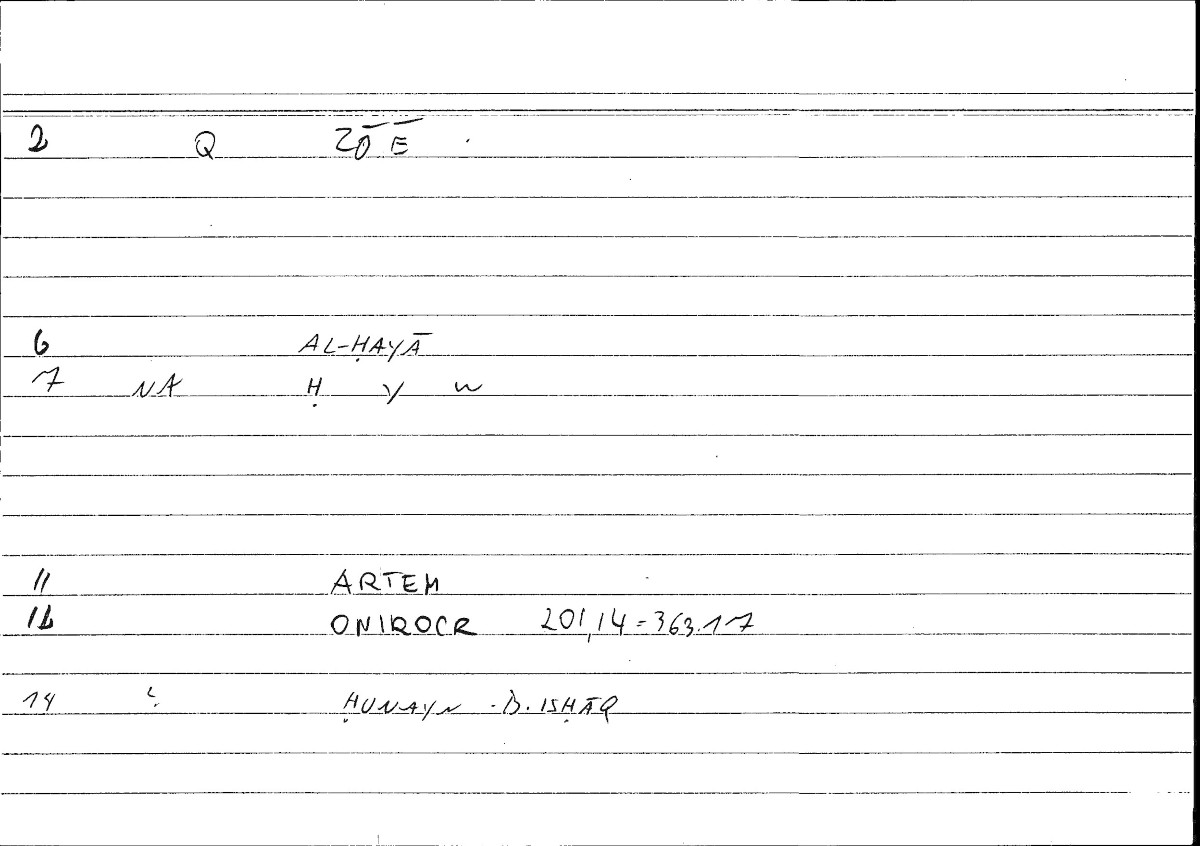 2 Q ZŌĒ
6 AL-ḤAYĀ
7 NA Ḥ y w
11 ARTEM
12 ONIROCR 201,14=363.17
14 ḤUNAYN B. ISḤĀQ